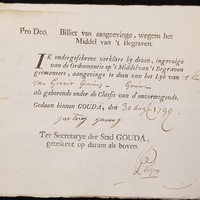 Pro Deo. Billet van aangevinge, wegens het
Middel van 't Begraven.
IK ondergeschreve verklare by dezen, ingevolge
van de Ordonnantie op 't Middel van 't Begraven
geëmaneert, aangevinge te dien van het Lyk van 't
van Gerrit
als gehorende onder de Classis van d'onvermogende.
Gedaan binnen GOUDA, den 30 1799
Ter Secretarye der Stad GOUDA,
getekent op datum als boven.